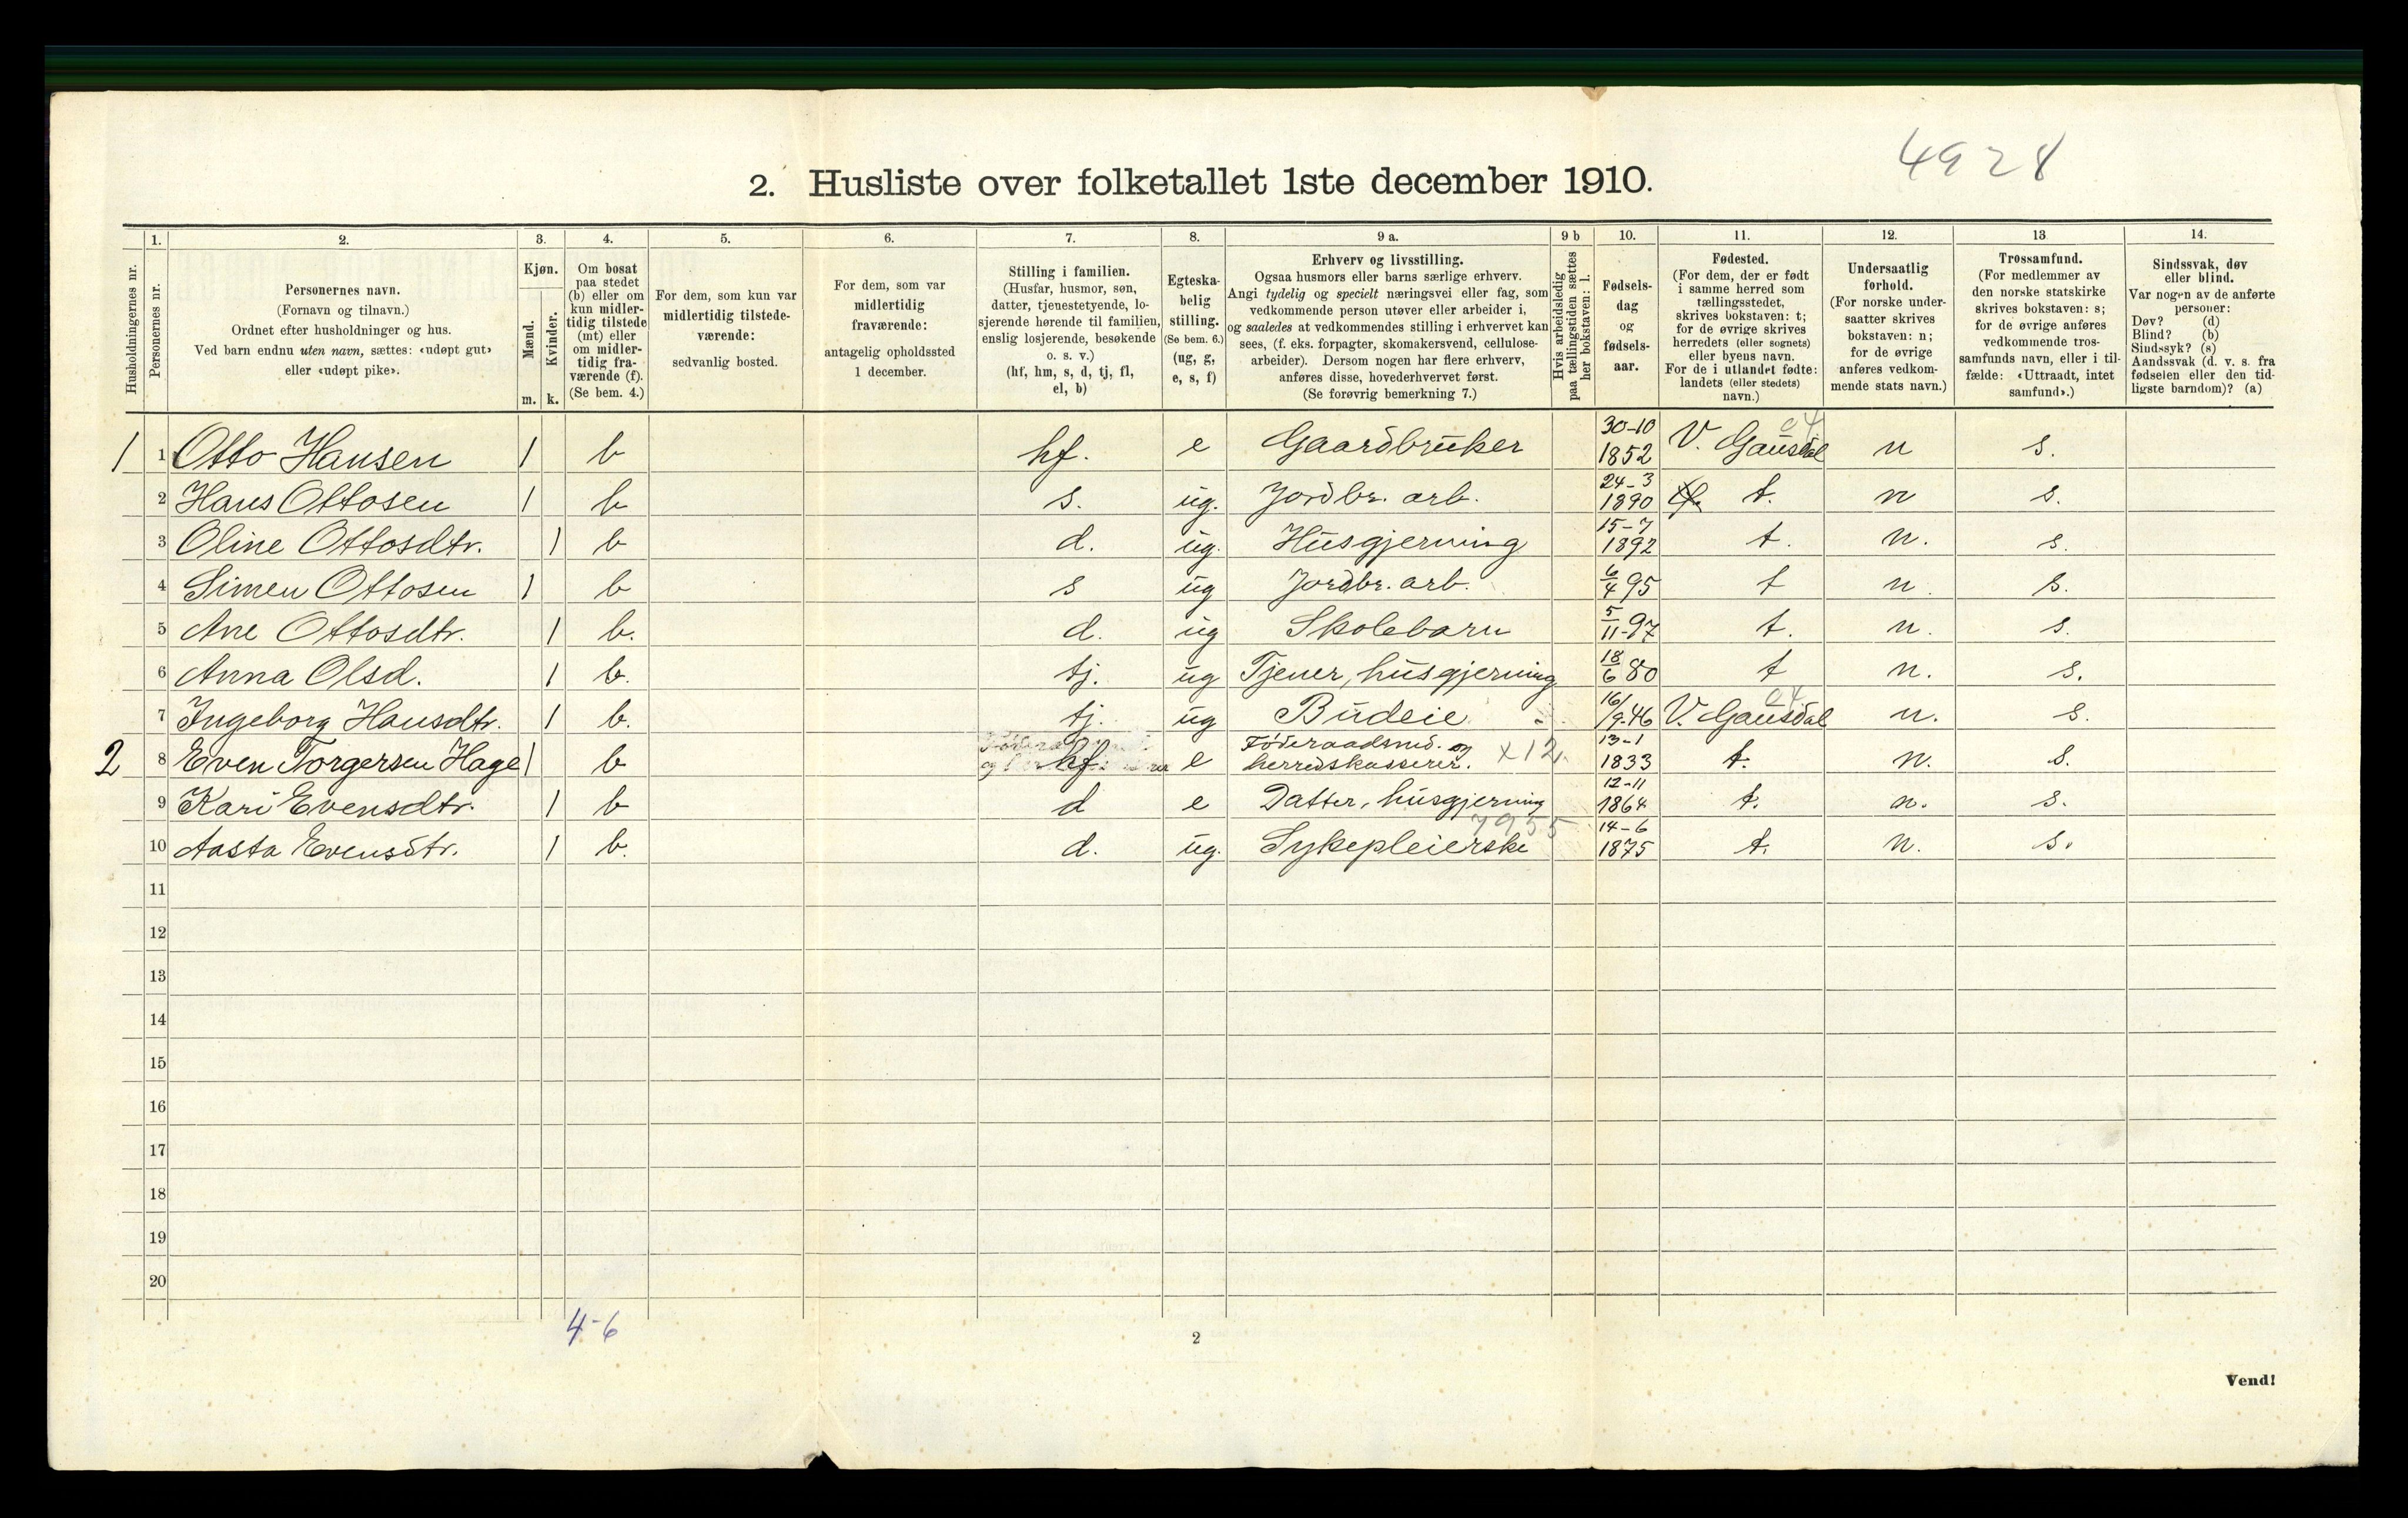 4928
2. Husliste over folketallet 1ste december 1910.
Husholdningernes nr.
1.
Personernes nr.
2.
Personernes navn.
(Fornavn og tilnavn.)
Ordnet efter husholdninger og hus.
Ved barn endnu uten navn, sættes: «udøpt gut»
eller «udøpt pike».
3.
Kjøn.
Mænd.
Kvinder.
m. k.
4.
Om bosat
paa stedet
(b) eller om
kun midler-
tidig tilstede
(mt) eller
om midler-
tidig fra-
værende (f).
(Se bem. 4.)
5.
For dem, som kun var
midlertidig tilstede-
værende:
sedvanlig bosted.
6.
For dem, som var
midlertidig
fraværende:
antagelig opholdssted
1 december.
7.
Stilling i familien.
(Husfar, husmor, søn,
datter, tjenestetyende, lo-
sjerende hørende til familien,
enslig losjerende, besøkende
o. s. v.)
(hf, hm, s, d, tj, fl,
el, b)
8.
Egteska-
belig
stilling.
(Se bem. 6.)
(ug, g,
e, s, f)
9 a.
Erhverv og livsstilling.
Ogsaa husmors eller barns særlige erhverv.
Angi tydelig og specielt næringsvei eller fag, som
vedkommende person utøver eller arbeider i,
og saaledes at vedkommendes stilling i erhvervet kan
sees, (f. eks. forpagter, skomakersvend, cellulose-
arbeider). Dersom nogen har flere erhverv,
anføres disse, hovederhvervet først.
(Se forøvrig bemerkning 7.)
9 b
Hvis arbeidsledig
paa tællingstiden sættes
her bokstaven: l.
10.
Fødsels-
dag
og
fødsels-
aar.
11.
Fødested.
(For dem, der er født
i samme herred som
tællingsstedet,
skrives bokstaven: t;
for de øvrige skrives
herredets (eller sognets)
eller byens navn.
For de i utlandet fødte:
landets (eller stedets)
navn.)
12.
Undersaatlig
forhold.
(For norske under-
saatter skrives
bokstaven: n;
for de øvrige
anføres vedkom-
mende stats navn.)
13
Trossamfund.
(For medlemmer av
den norske statskirke
skrives bokstaven: s;
for de øvrige anføres
vedkommende tros-
samfunds navn, eller i til-
fælde: «Uttraadt, intet
samfund».)
14.
Sindssvak, døv
eller blind.
Var nogen av de anførte
personer:
Døv? (d)
Blind? (b)
Sindssyk? (s)
Aandssvak (d. v. s. fra
fødselen eller den tid-
ligste barndom)? (a)
1 1 Otto Hansen 1 b hf. e Gaardbruker 30-10 1852 V. Gausdal n s.
2 Hans Ottosen 1 b s. ug. Jordbr. arb. 24-3 1890 t. n s.
3 Oline Ottosdtr. 1 b d. ug. Husgjerning 15-7 1892 t. n. s.
4 Simen Ottosen 1 b s ug Jordbr. arb. 6/4 95 t n. s.
5 Ane Ottosdtr. 1 b. d. ug Skolebarn 5/11-97 t. n. s.
6 Anna Olsd. 1 b. tj. ug Tjener, husgjerning 18/6 80 t n. s.
7 Ingeborg Hansdtr. 1 b. tj. ug Budeie 16/9-46 V. Gausdal n. s.
2 8 Even Torgersen Hage 1 b hf. e Føderaadsmd. og herredskasserer. x12. 13-1 1833 t. n. s.
9 Kari Evensdtr. 1 b d e Datter, husgjerning 12-11 1864 t. n. s.
10 Aasta Evensdtr. 1 b. d. ug. Sykepleierske 7955 14-6 1875 t. n. s.
11
12
13
14
15
16
17
18
19
20
4-6
2
Vend!